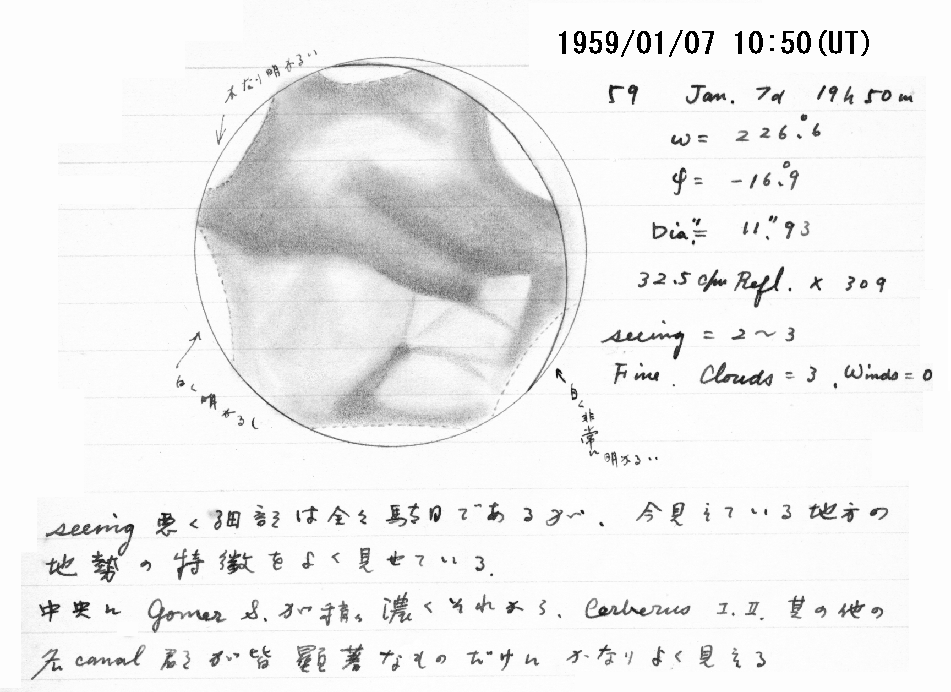 1959/01/07 10:50(UT)
かなり明かるい
59 Jan. 7d 19h 50m
ω= 226.°6
φ= -16.°9
Dia.= 11."93
32.5 cm Refl. × 309
seeing = 2～3
Fine. Clouds = 3, Winds = 0
白く明かるし
白く非常に明かるい
seeing 悪く細部は全く駄目であるが、今見えている地方の
地勢の特徴をよく見せている.
中央に Gomer S. が稍々濃くそれから、Cerberus I.II. 其の他の
canal 群が皆顕著なものだけにかなりよく見える